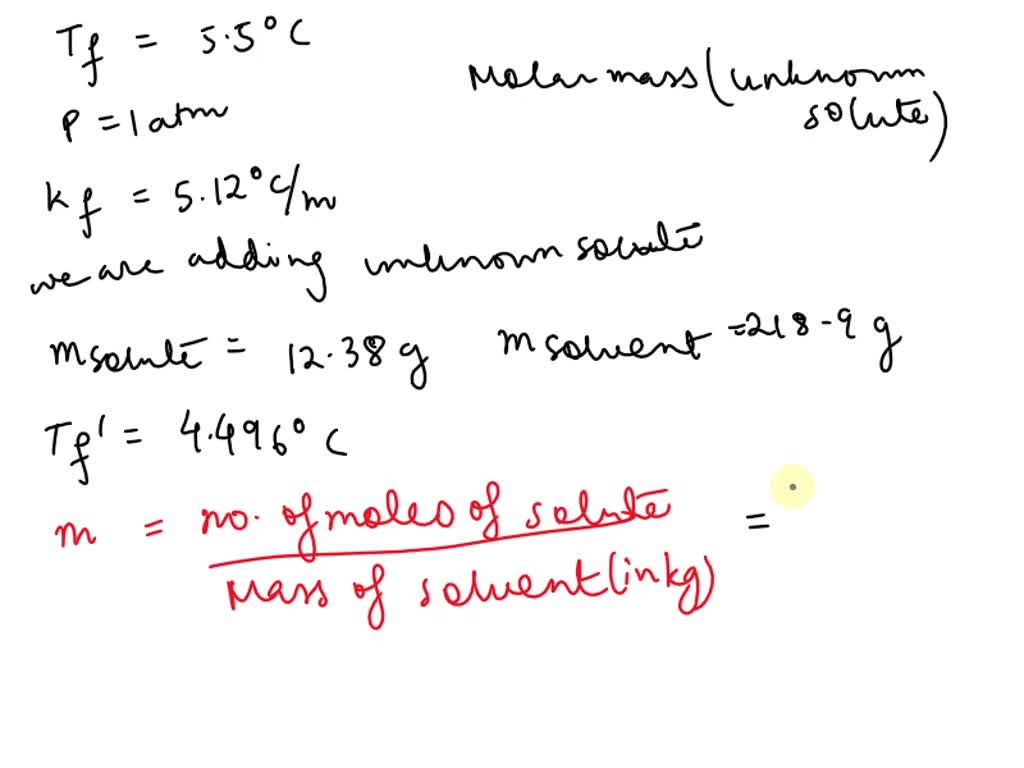 Tf = 5.5°C
Molar mass (unknown solute)
P = 1 atm
kf = 5.12°C/m
we are adding unknown solute
msolute = 12.38 g msolvent = 218.9 g
Tf' = 4.496°C
m = no. of moles of solute / Mass of solvent (in kg) =